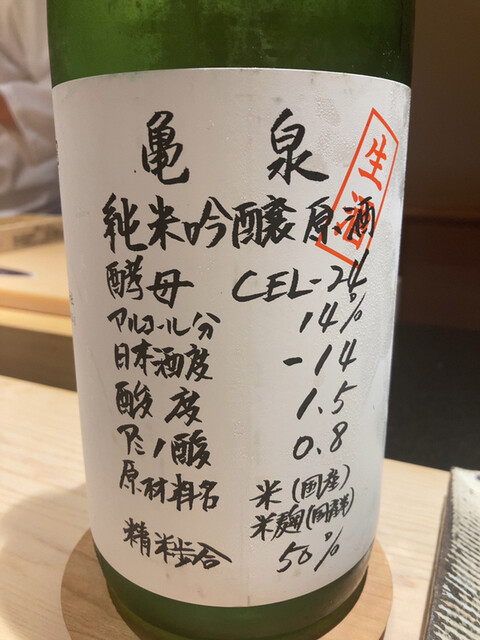 亀泉
生酒
純米吟醸原酒
酵母 CEL-24
アルコール分 14%
日本酒度 -14
酸度 1.5
アミノ酸 0.8
原材料名 米(国産)
米麹(国産米)
精米歩合 50%